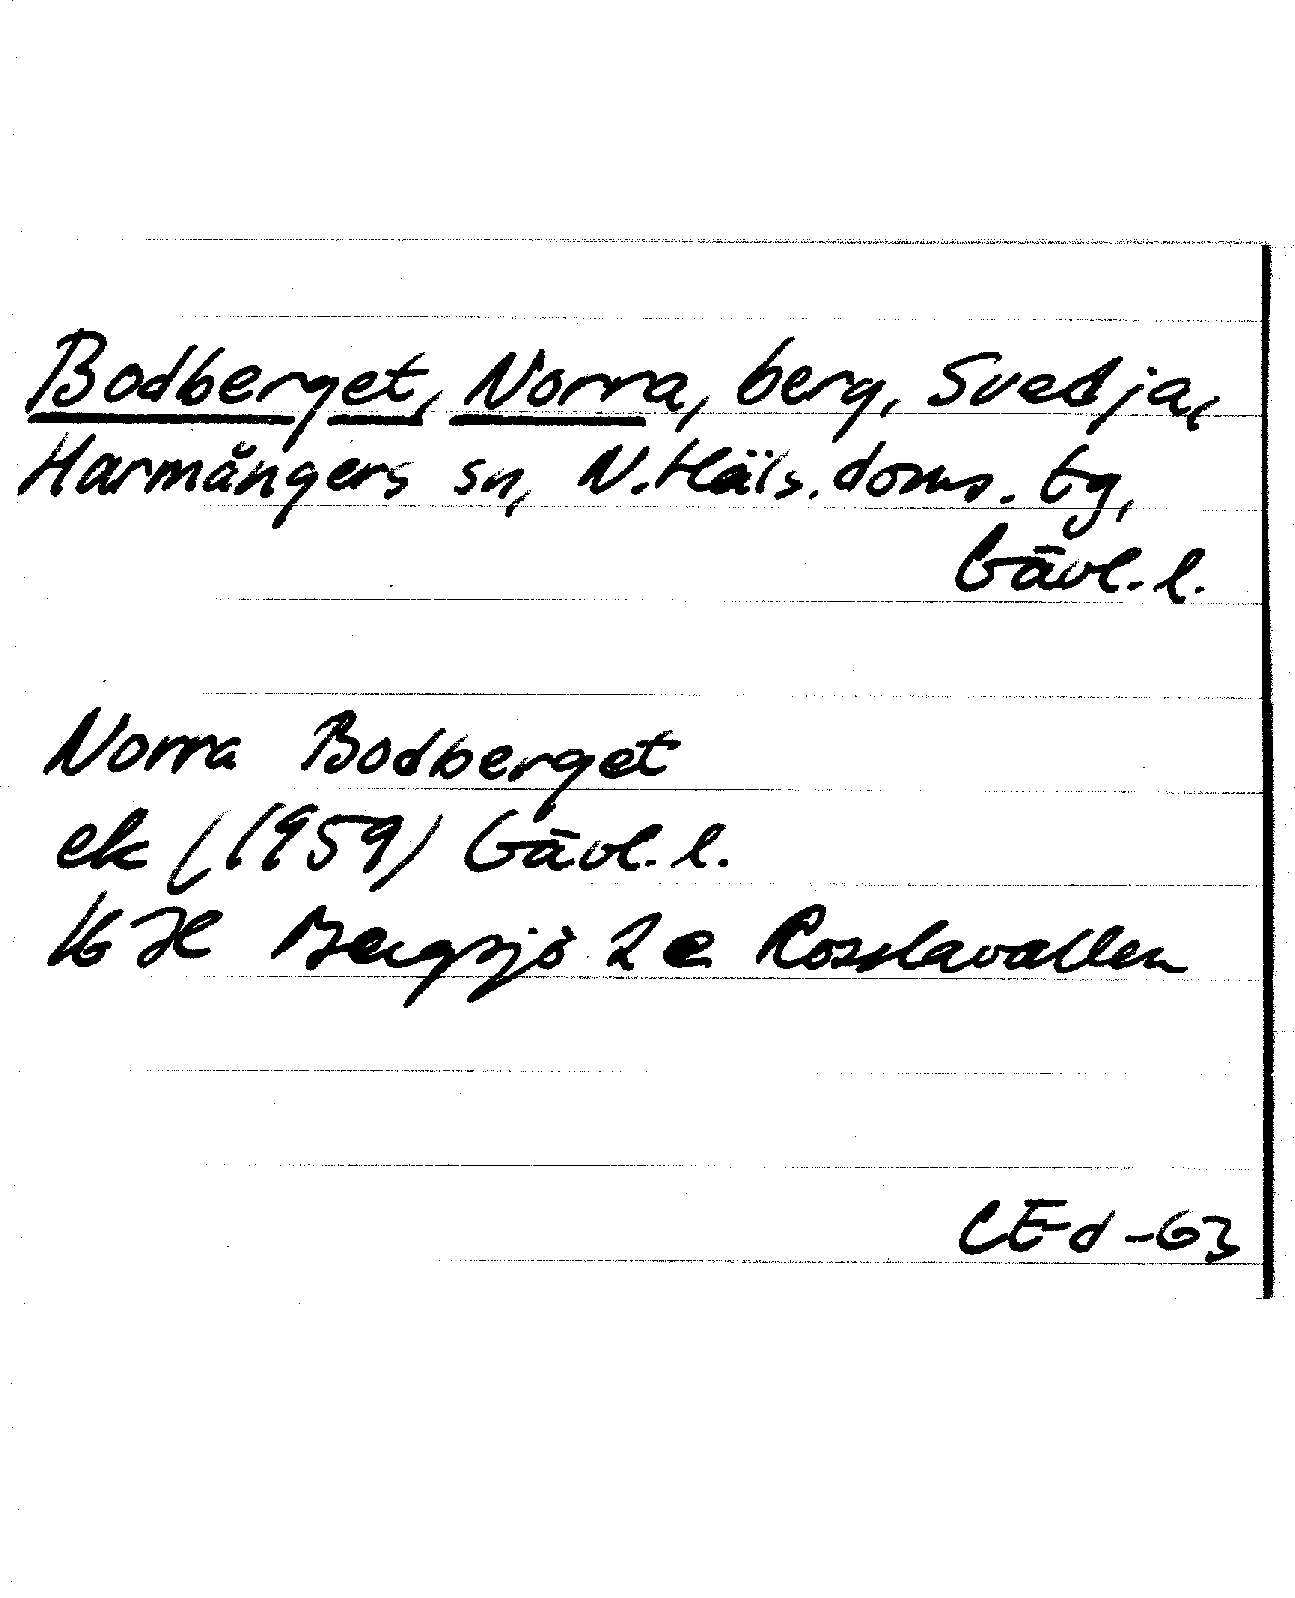 Bodberget, Norra, berg, Svedja,
Harmångers sn, N. Häls. doms. tg,
Gävl. l.
Norra Bodberget
ek (1959) Gävl. l.
16 H Bergsjö 2 e Rosslavallen
CEd -63